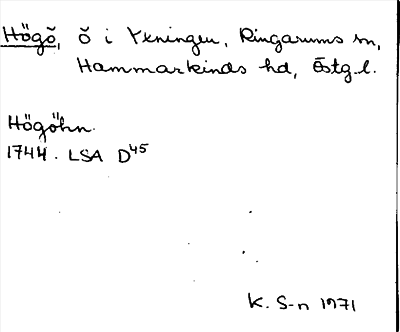 Högö, ö i Yxningen, Ringarums sn,
Hammarkinds hd, Östg.l.
Högöhn.
1744. LSA D45
K. S-n 1971